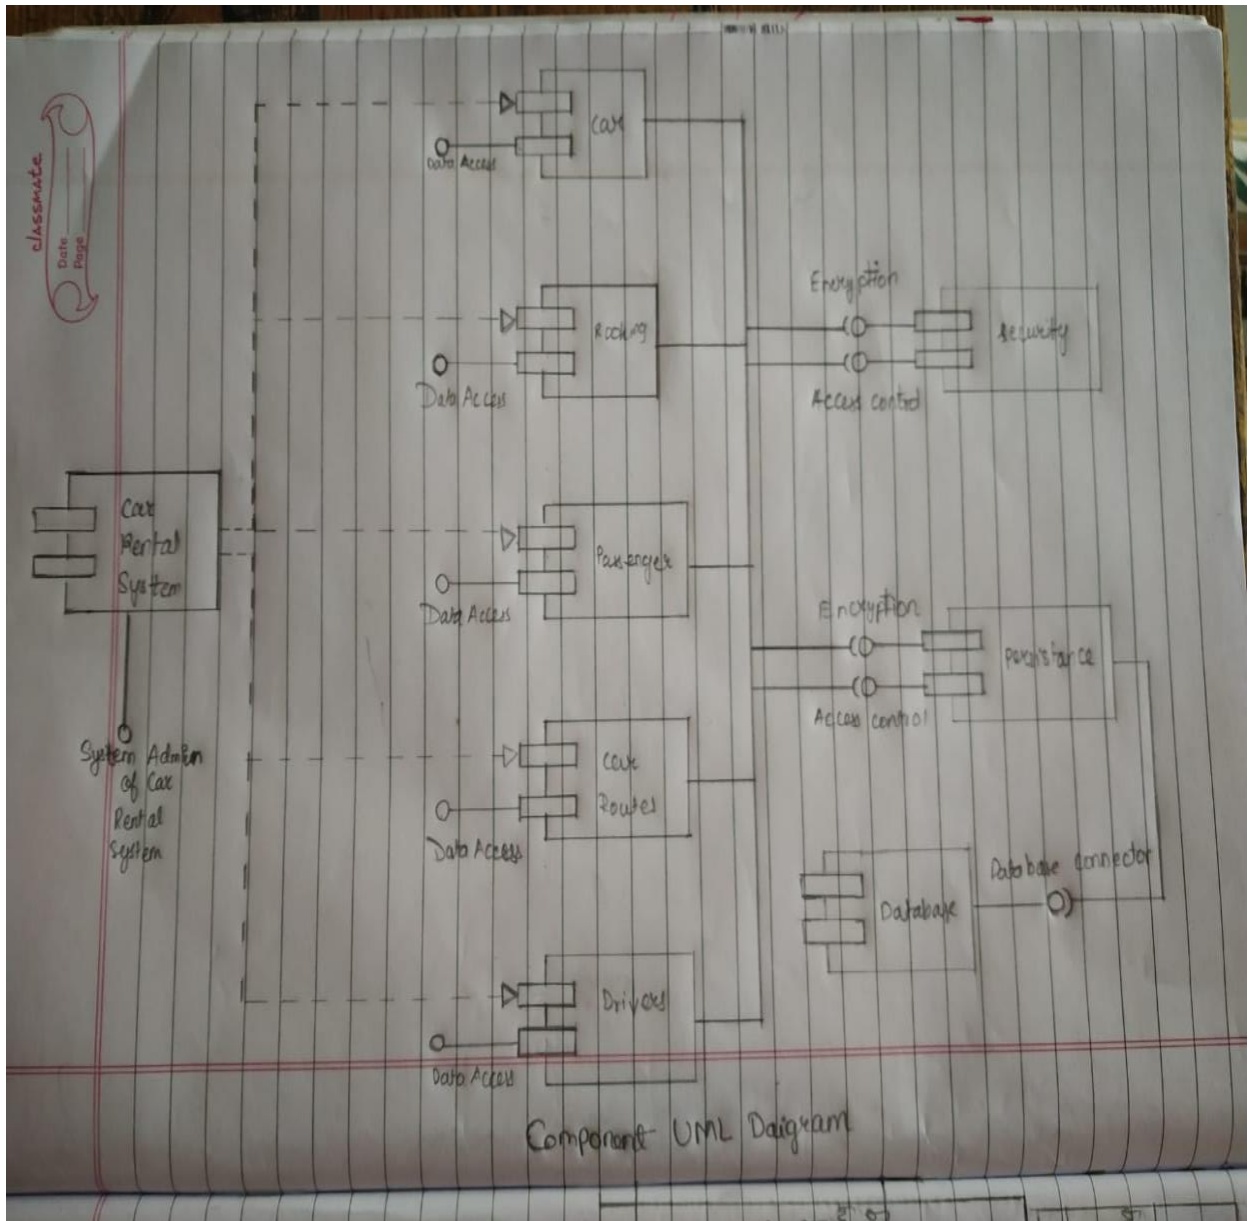 classmate
Date
Page
Car
Data Access
Encryption
Security
Data Access
Access control
Car
Rental
System
Passenger
Data Access
Encryption
Persistance
Access control
System Admin
of Car
Rental
System
Car
Routes
Data Access
Database connector
Database
Drivers
Data Access
Component UML Daigram